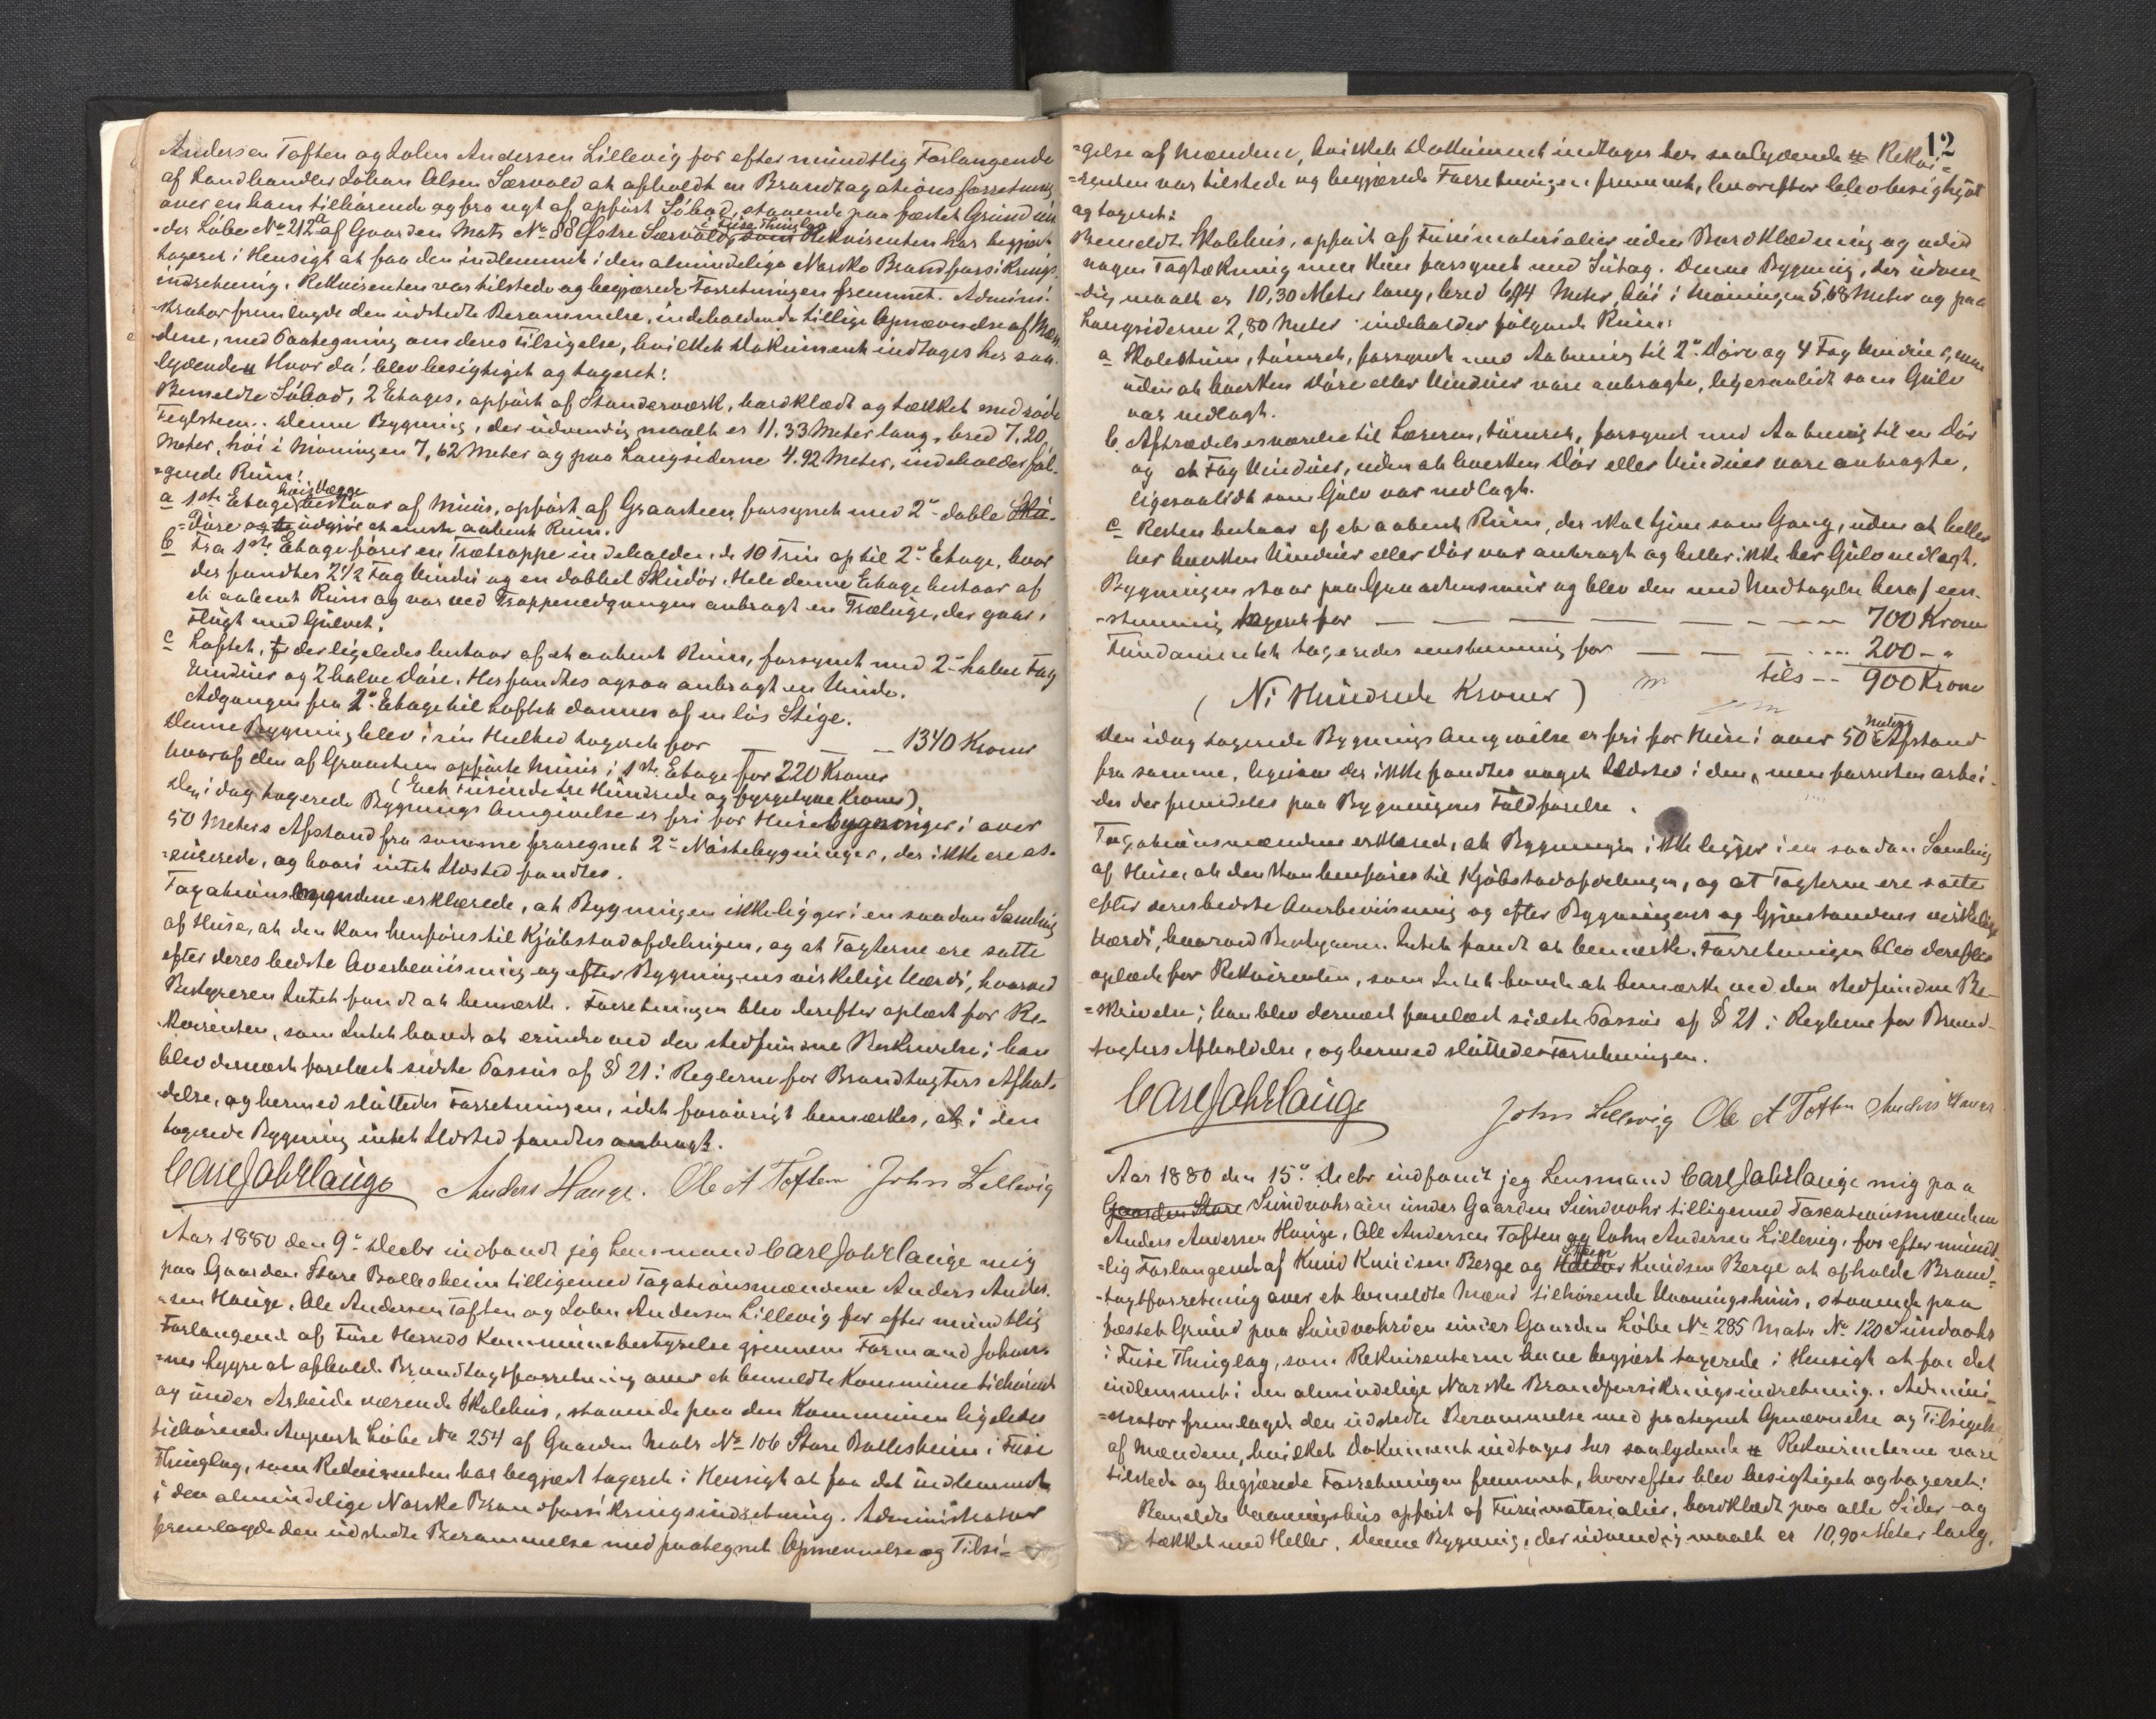 Andersen Toften og John Andersen Lillevig for efter mundtlig Forlangende
af Landhandler Johan Olsen Sævold at afholdt en Brandtaxationsforretning
over en ham tilhørende og fra nyt af opført Søbod, staaende paa fæstet Grund un-
der Løbe No 212a af Gaarden Matr No 88 Østre Sævold, i Fuse Thinglag som Rekvirenten har begjært
taxeret i Hensigt at faa den indlemmet i den almindelige Norske Brandforsikrings-
indretning. Rekvirenten var tilstede og begjærede Forretningen fremmet. Admini-
strator fremlagde den udstedte Berammelse, indeholdende tillige Opnævnelse af Mæn-
dene, med Paategning om deres Tilsigelse, hvilket Dokument indtages her saa-
lydende # Hvor da! blev besigtiget og taxeret:
Bemeldte Søbod, 2 Etages, opført af Standerværk, bordklædt og tækket med røde
Teglsteen. Denne Bygning, der udvendig maalt er 11,33 Meter lang, bred 7,20
Meter, høi i Møningen 7,62 Meter og paa Langsiderne 4.92 Meter, indeholder føl-
gende Rum:
a 1ste Etage, hvis Vægge bestaar af Muur, opført af Graasteen, forsynet med 2de doble Sku-
-Døre og udgjør et eneste aabent Rum.
b Fra 1ste Etage fører en Trætrappe indeholdende 10 Trin op til 2de Etage, hvor
der fandtes 2 1/2 Fag Vindu og en dobbel Skudør. Hele denne Etage bestaar af
et aabent Rum og var ved Trappenedgangen anbragt en Træluge, der gaar i
Flugt med Gulvet.
c Loftet, der ligeledes bestaar af et aabent Rum, forsynet med 2de halve Fag
Vinduer og 2 halve Døre. Her fandtes ogsaa anbragt en Vinde.
Adgangen fra 2de Etage til Loftet dannes af en løs Stige.
Denne Bygning blev i sin Heelhed taxeret for — — — 1340 Kroner
hvoraf den af Graasteen opførte Muur i 1ste Etage for 220 Kroner
(Eet Tusinde tre Hundrede og fyrgetyve Kroner).
Den i dag taxerede Bygnings Angivelse er fri for Huse bygninger i over
50 Meters Afstand fra samme fraregnet 2de Nøstebygninger, der ikke ere as-
surerede, og hvori intet Ildsted fandtes.
Taxationsmændene erklærede, at Bygningen ikke ligger i en saadan Samling
af Huse, at den kan henføres til Kjøbstadafdelingen, og at Taxterne ere satte
efter deres bedste Overbeviisning og efter Bygningens virkelige Værdi, hvorved
Bestyreren Intet fandt at bemærke. Forretningen blev derefter oplæst for Re-
kvirenten, som Intet havde at erindre ved den stedfundne Beskrivelse; han
blev dernæst forelæst sidste Passus af § 21 i Reglerne for Brandtaxters Afhol-
delse, og hermed sluttedes Forretningen, idet forøvrigt bemærkes, at i den
taxerede Bygning intet Ildsted fandtes anbragt.
Carl Joh Lange Anders Hauge. Ole A Toften John Lillevig
Aar 1880 den 9de Decbr indfandt jeg Lensmand Carl Joh Lange mig
paa Gaarden Store Bollesheim tilligemed Taxationsmændene Anders Ander-
sen Hauge, Ole Andersen Toften og John Andersen Lillevig for efter mundtlig
Forlangend af Fuse Herreds Kommunebestyrelse gjennem Formand Johan-
nes Lygre at afholde Brandtaxtforretning over et bemeldte Kommune tilhørende
og under Arbeide værende Skolehus, staaende paa den Kommunen ligeledes
tilhørende Anpart Løbe No 254 af Gaarden Matr No 106 Store Bollesheim i Fuse
Thinglag, som Rekvirenten har begjært taxeret i Hensigt at faa det indlemmet
i den almindelige Norske Brandforsikringsindretning. Administrator
fremlagde den udstedte Berammelse med paategnet Opnævnelse og Tilsi-
12
-gelse af Mændene, hvilket Dokument indtages her saalydende # Rekvi-
-renten var tilstede og begjærede Forretningen fremmet, hvorefter blev besigtiget
og taxeret:
Bemeldte Skolehus, opført af Furumaterialier uden Bordklædning og uden
nogen Tagtækning men kun forsynet med Sutag. Denne Bygning, der udven-
dig maalt er 10,30 Meter lang, bred 6,94 Meter, høi i Møningen 5,68 Meter og paa
Langsiderne 2,80 Meter indeholder følgende Rum:
a Skolestuen, tømret, forsynet med Aabning til 2de Døre og 4 Fag Vinduer, men
uden at hverken Døre eller Vinduer vare anbragte, ligesaalidt som Gulv
var nedlagt.
b. Aftrædelsesværelse til Læreren, tømret, forsynet med Aabning til en Dør
og et Fag Vinduer, uden at hverken Dør eller Vinduer vare anbragte,
ligesaalidt som Gulv var nedlagt.
c Resten bestaar af et aabent Rum, der skal tjene som Gang, uden at heller
her hverken Vinduer eller Dør var anbragt og heller ikke her Gulv nedlagt.
Bygningen staar paa Graasteensmuur og blev den med Undtagelse heraf een-
stemmig taxeret for — — — — — — 700 Kroner
Fundamentet taxeredes eenstemmig for — — — 200 - "
tils -- 900 Kroner
(Ni Hundrede Kroner)
Den idag taxerede Bygnings Angivelse er fri for Huse i over 50 Meters Afstand
fra samme, ligesom der ikke fandtes noget Ildsted i den, men forresten arbei-
des der fremdeles paa Bygningens Fuldførelse.
Taxationsmændene erklæred, at Bygningen ikke ligger i en saadan Samling
af Huse, at den kan henføres til Kjøbstadafdelingen, og at Taxterne ere satte
efter deres bedste Overbeviisning og efter Bygningens og Gjenstandens virkelige
Værdi, hvorved Bestyreren Intet fandt at bemærke. Forretningen blev derefter
oplæst for Rekvirenten, som Intet havde at bemærke ved den stedfundne Be-
-skrivelse; han blev dernæst forelæst sidste Passus af § 21 i Reglerne for Brand-
taxters Afholdelse, og hermed sluttedes Forretningen.
Carl Joh Lange
John Lillevig Ole A Toften Anders Hauge
Aar 1880 den 15de Decbr indfandt jeg Lensmand Carl Joh Lange mig paa
Gaarden Store Sundvohrøien under Gaarden Sundvohr tilligemed Taxationsmændene
Anders Andersen Hauge, Ole Andersen Toften og John Andersen Lillevig, for efter mundt-
-lig Forlangend af Knud Knudsen Berge og Knudsen Berge at afholde Brand-
-taxtforretning over et bemeldte Mænd tilhørende Vaaningshuus, staaende paa
fæstet Grund paa Sundvohrøien under Gaarden Løbe No 285 Matr No 120 Sundvohr
i Fuse Thinglag, som Rekvirenterne have begjært taxerede i Hensigt at faa det
indlemmet i den almindelige Norske Brandforsikringsindretning. Admini-
-strator fremlagde den udstedte Berammelse med paategnet Opnævnelse og Tilsigelse
af Mændene, hvilket Dokument indtages her saalydende # Rekvirenterne vare
tilstede og begjærede Forretningen fremmet, hvorefter blev besigtiget og taxeret:
Bemeldte Vaaningshus opført af Furumaterialier, bordklædt paa alle Sider og
tækket med Heller. Denne Bygning, der udvendig maalt er 10,90 Meter lang,